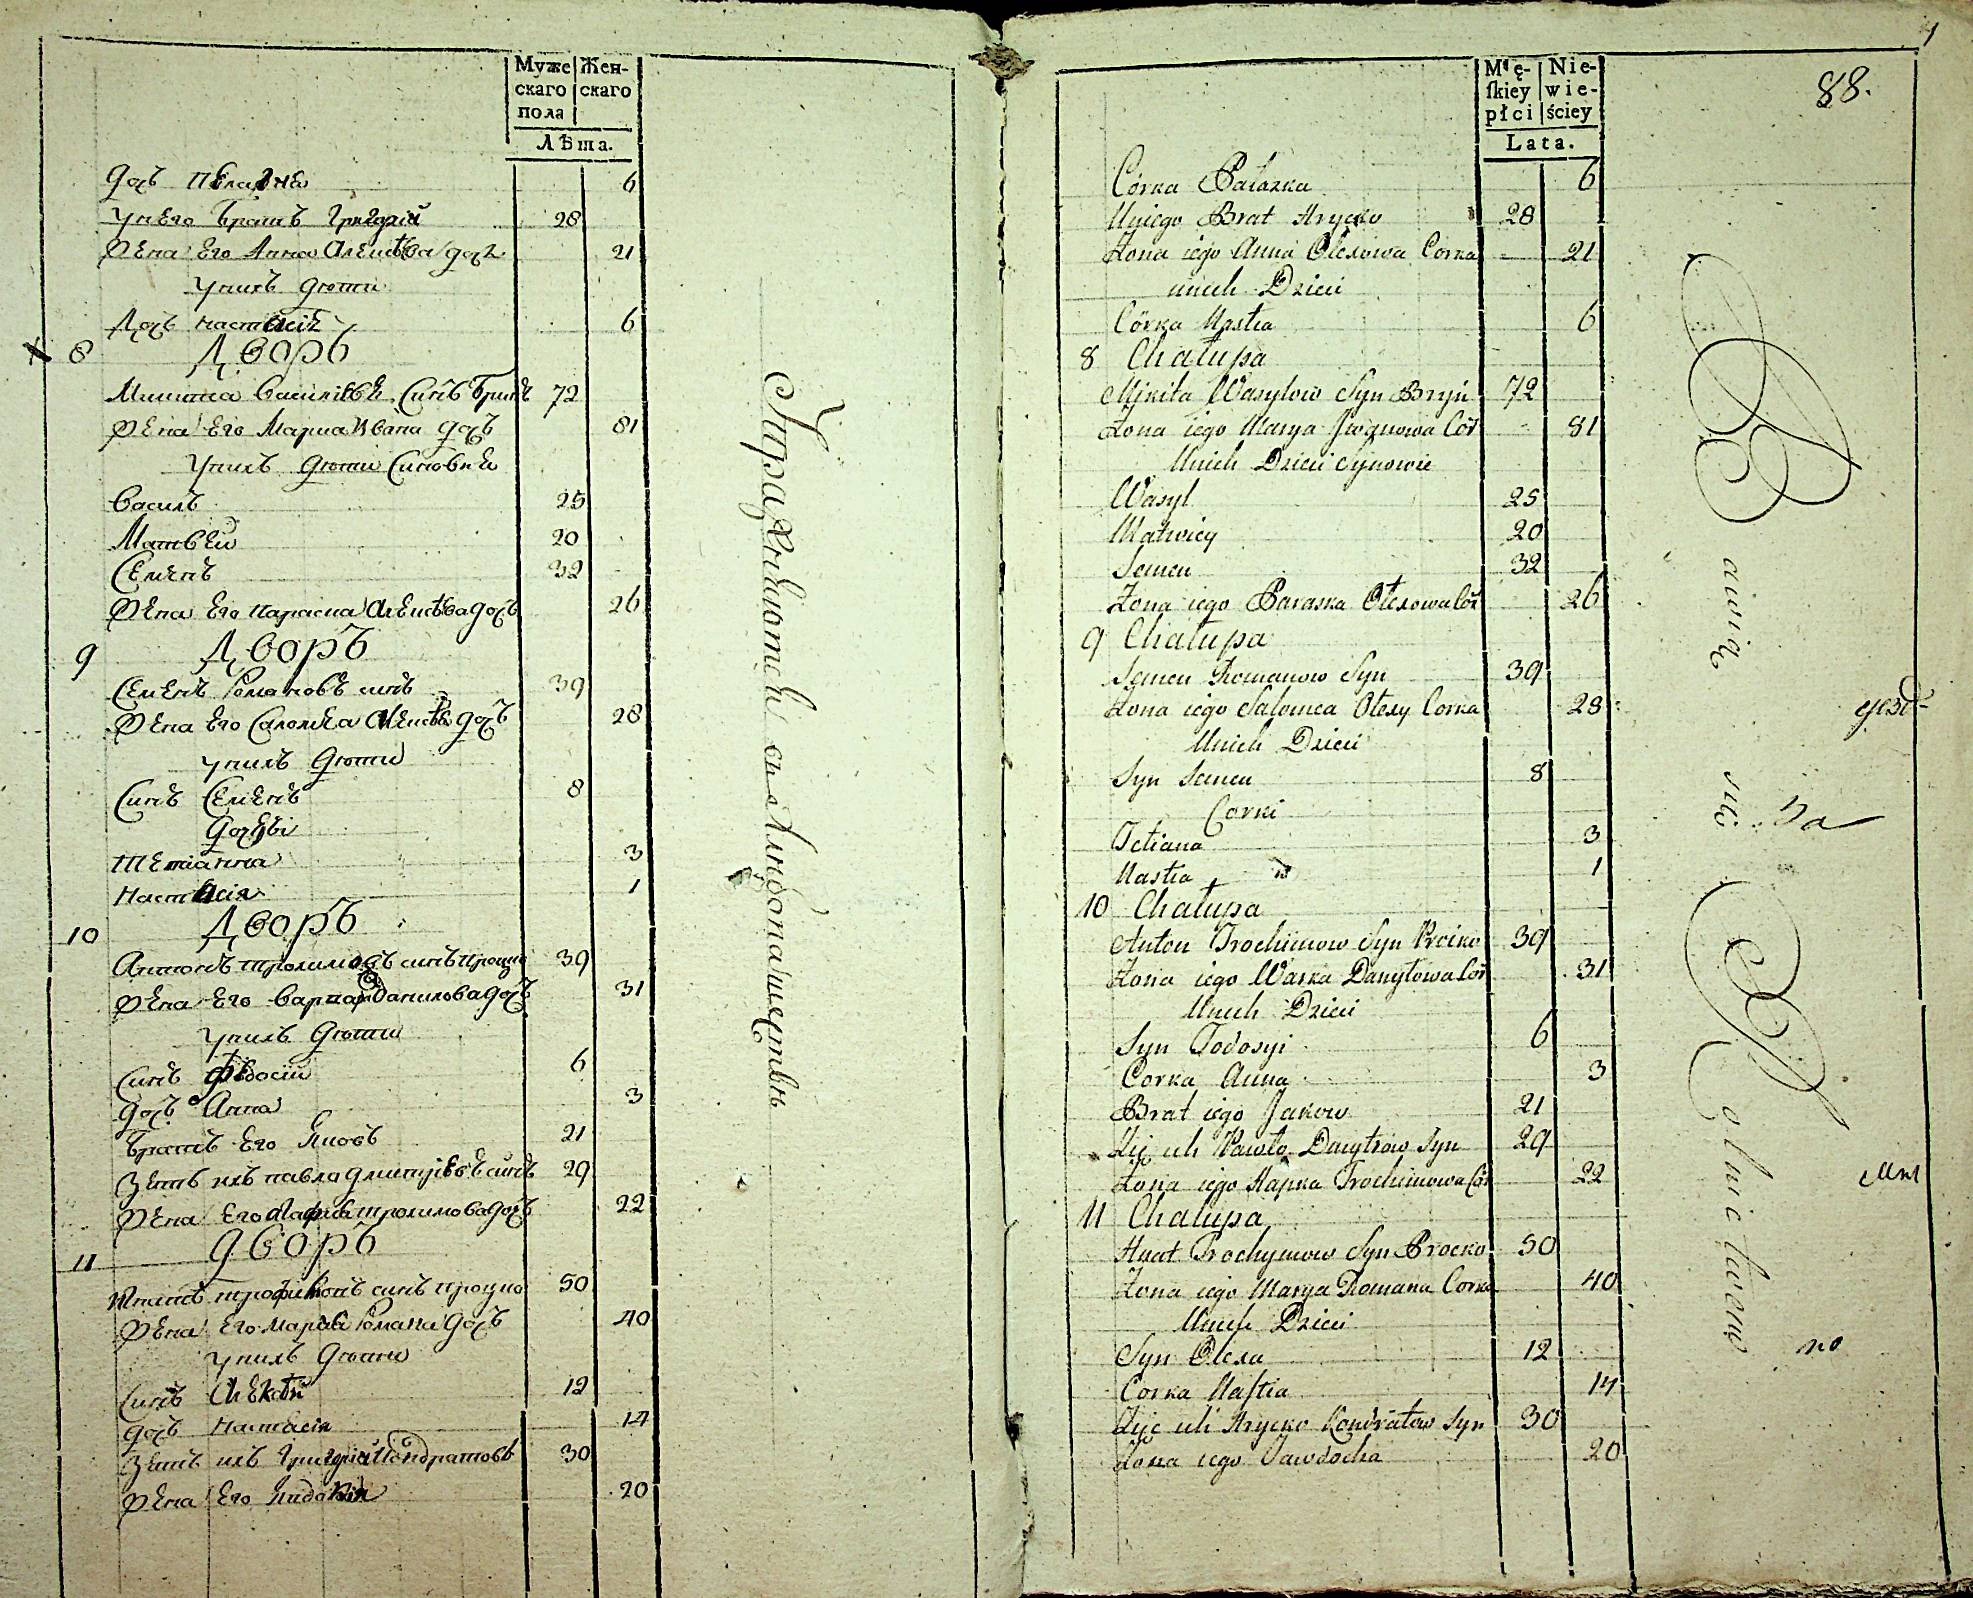 Муже
скаго
пола
Жен-
скаго
Лѣта.
дочь Пелагея 6
у него братъ Григорій 28
Жена его Анна Алексѣева дочь 21
у нихъ дѣти
Дочь Настасія 6
8 Дворъ
Микита Василіевъ синъ Бринь 72
Жена его Мариа Ивана дочь 81
у нихъ дѣти синовья
Василь 25
Матвей 20
Семенъ 32
Жена его Параска Алексѣева дочь 26
9 Дворъ
Семенъ Романовъ синъ 39
Жена его Саломея Алексѣева дочь 28
у нихъ дѣти
Синъ Семенъ 8
дочери
Тетіанна 3
Настасія 1
10 Дворъ
Антонъ Трохимовъ синъ Процко 39
Жена его Варвара Данилова дочь 31
у нихъ дѣти
Синъ Федосій 6
дочь Анна 3
Братъ его Яковъ 21
Зять ихъ Павло Дмитріевъ синъ 29
Жена его Агафія Трохимова дочь 22
11 Дворъ
Игнатъ Трофимовъ синъ Процко 50
Жена его Марія Романа дочь 40
у нихъ дѣти
Синъ Алексѣй 12
дочь Настасія 14
Зять ихъ Григорій Кондратовъ 30
Жена его Явдокія 20
Упражняются въ хлебопашестве
Męskiey płci
Niewieściey
Lata.
88.
Córka Pałazka 6
U niego Brat Hrycko 28
Żona iego Anna Olexowa Corka 21
u nich Dzieci
Córka Nastia 6
8 Chałupa
Mikita Wasylow Syn Bryń 72
Żona iego Marya Iwanowa Cor 81
U nich Dzieci Synowie
Wasyl 25
Matwiey 20
Semen 32
Żona iego Paraska Olexowa Cor 26
9 Chałupa
Semen Romanow Syn 39
Żona iego Salomea Olexy Corka 28
U nich Dzieci
Syn Semen 8
Corki
Tetiana 3
Nastia 1
10 Chałupa
Anton Trochimow Syn Procko 39
Żona iego Warka Danyłowa Cor 31
U nich Dzieci
Syn Todosyi 6
Corka Anna 3
Brat iego Jakow 21
Zięć ich Pawło Dmytrow Syn 29
Żona iego Hapka Trochimowa Cor 22
11 Chałupa
Hnat Trochymow Syn Procko 50
Żona iego Marya Romana Corka 40
U nich Dzieci
Syn Olexa 12
Corka Nastia 14
Zięć ich Hrycko Kondratow Syn 30
Żona iego Jawdocha 20
Bawią się Rolnictwem